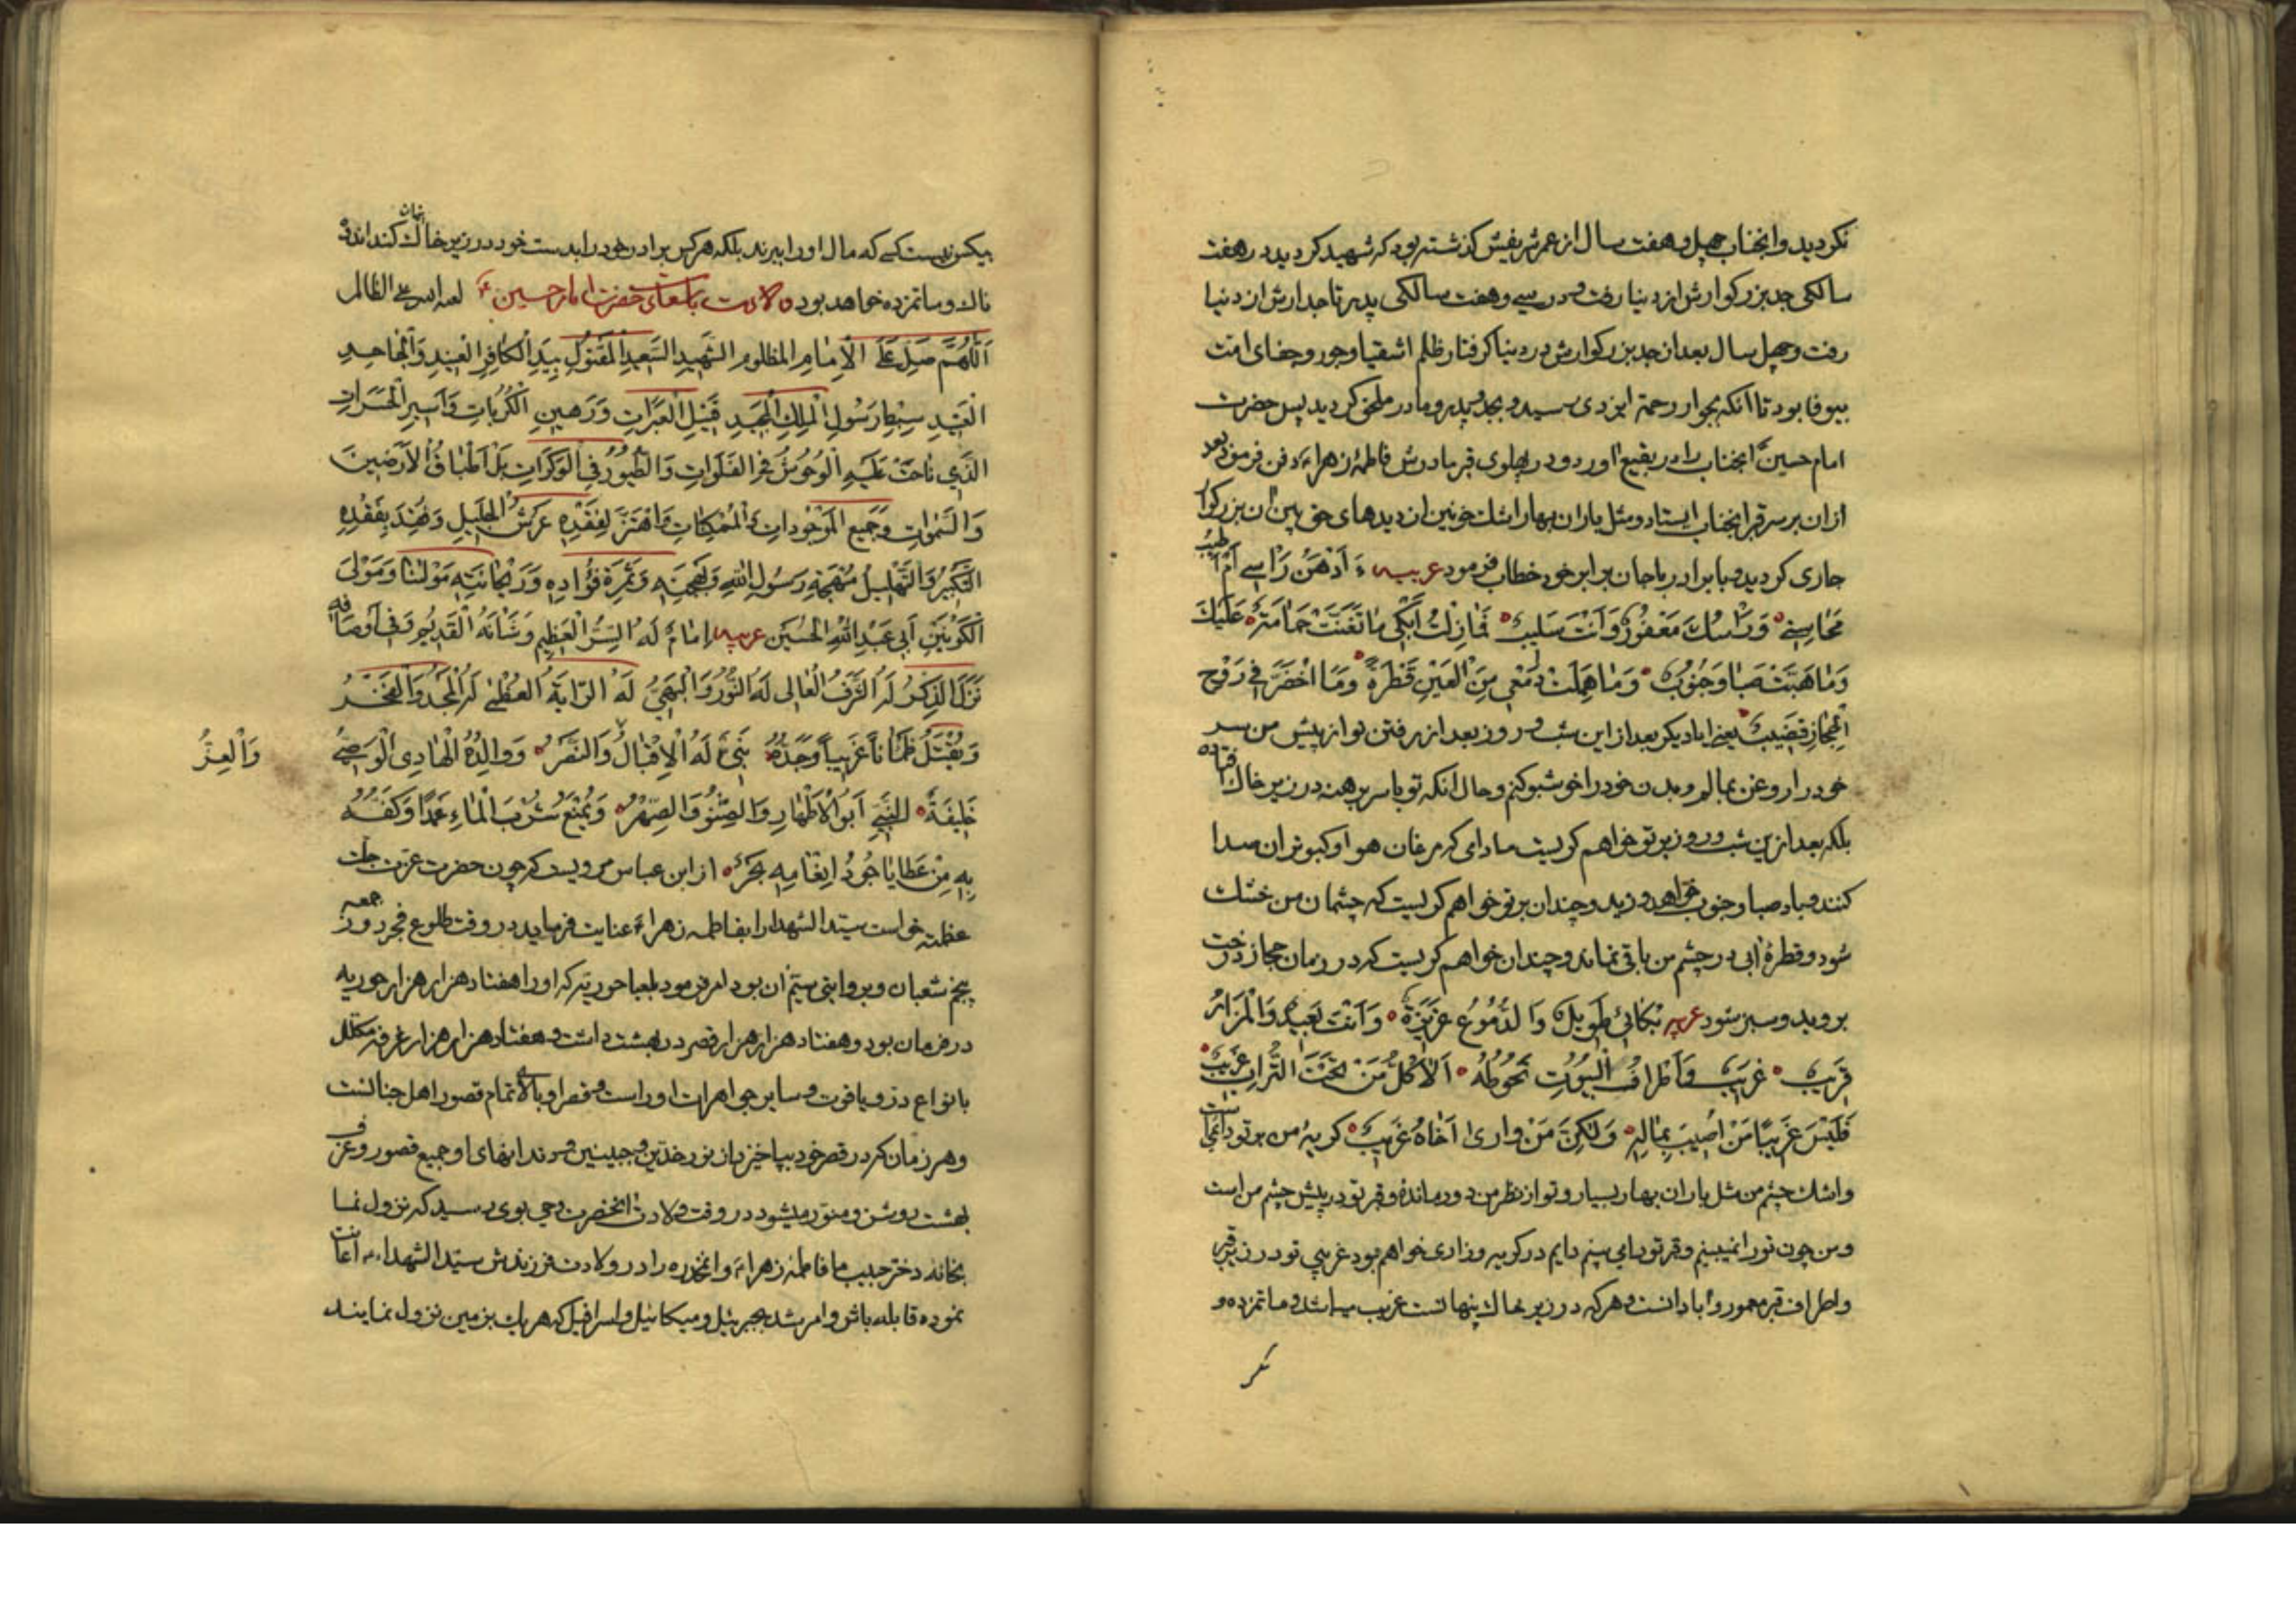 نکردید و انجناب چهل و هفت سال از عمر شریفش کذشته بود که شهید کردید در هفت
سالکی جد بزرکوارش از دنیا رفت و در سی و هفت سالکی پدر تاجدارش از دنیا
رفت و چهل سال بعد از جد بزرکوارش در دنیا کرفتار ظلم اشقیا و جور و جفای امت
بیوفا بود تا انکه بجوار رحمة ایزدی رسید و بجد و پدر و مادر ملحق کردید پس حضرت
امام حسین انجناب را در بقیع اورد و در پهلوی قبر مادرش فاطمهٔ زهراء دفن فرمود بعد
ازان بر سر قبر انجناب ایستاد و مثل باران بهار اشك خونین از دیدهای حق بین ان بزرکوار
جاری کردید و با برادر باجان برابر خود خطاب فرمود عربیه ءَاَدْهَنُ رَاْسے اَمْ اُطَیِّبُ
مَحَاسِنِے وَرَاْسُكَ مَعْفُورٌ وَاَنْتَ سَلِیبٌ فَمَا زِلْتُ اَبْکِی مَا تَغَنَّتْ حَمَامَةٌ عَلَیْكَ
وَمَا هَبَّتْ صَبَا وَجَنُوبٌ وَمَا هَمَلَتْ دَمْعِی مِنَ الْعَیْنِ قَطْرَةً وَمَا اخْضَرَّ فِے رَوْحِ
الْحِجَازِ قَضِیبٌ یعنے ایا دیکر بعد از این شب و روز بعد از رفتن تو از پیش من سر
خود را روغن بمالم و بدن خود را خوشبو کنم و حال انکه تو با سر برهنه در زیر خاك افتاده
بلکه بعد ازین شب و روز بر تو خواهم کریست مادامی که مرغان هوا و کبوتران صدا
کنند و باد صبا و جنوب خواهد وزید و چندان بر تو خواهم کریست که چشمان من خشك
شود و قطرهٔ ابی در چشم من باقی نماند و چندان خواهم کریست که در زمان حجاز درخت
بروید و سبز شود عربیه بُکَائِی طَوِیلٌ وَالدُّمُوعُ غَزِیرَةٌ وَاَنْتَ بَعِیدٌ وَالْمَزَارُ
قَرِیبٌ غَرِیبٌ وَاَطْرَافُ الْبُیُوتِ تَحُوطُهُ اَلَا کُلُّ مَنْ تَحْتَ التُّرَابِ غَرِیبٌ
فَلَیْسَ غَرِیبًا مَنْ اُصِیبَ بِمَالِهِ وَلٰکِنَّ مَنْ وَارٰی اَخَاهُ غَرِیبٌ کریهٔ من بر تو دائمی است
و اشك چشم من مثل باران بهار بسیار و تو از نظر من دور ماندهٔ و قبر تو در پیش چشم من است
و من چون تو را نمیبینم و قبر تو را می بینم دایم در کریه و زاری خواهم بود غریبی تو در زیر قبر
و اطراف قبر معمور و ابادانست و هر که در زیر خاك پنهانست غریب میباشد و ماتمزده و
بیکس نیست کسے که مال او را ببرند بلکه هرکس برادر خود را بدست خود در زیر خاك پنهان کند اندوه
ناك و ماتمزده خواهد بود ولادت باسعادت حضرت امام حسین ع لعنه الله علی الظالم
اَللّٰهُمَّ صَلِّ عَلَی الْاِمَامِ الْمَظْلُومِ الشَّهِیدِ السَّعِیدِ الْمَقْتُولِ بِیَدِ الْکَافِرِ الْعَنِیدِ وَالْجَاحِدِ
الْعَتِیدِ سِبْطِ رَسُولِ الْمَلِكِ الْمَجِیدِ قَتِیلِ الْعَبَرَاتِ وَرَهِینِ الْکُرُبَاتِ وَاَسِیرِ الْحَسَرَاتِ
الَّذِی نَاحَتْ عَلَیْهِ الْوُحُوشُ فِے الْفَلَوَاتِ وَالطُّیُورُ فِی الْوَکَرَاتِ بَلْ اَطْبَاقُ الْاَرَضِینَ
وَالسَّمٰوَاتِ وَجَمِیعِ الْمَوْجُودَاتِ وَالْمُمْکِنَاتِ وَاهْتَزَّ لِفَقْدِهِ عَرْشُ الْجَلِیلِ وَفُقِدَ بِفَقْدِهِ
التَّکْبِیرُ وَالتَّهْلِیلُ مُهْجَةِ رَسُولِ اللهِ وَبَهْجَتِهِ وَثَمَرَةِ فُؤَادِهِ وَرَیْحَانَتِهِ مَوْلٰنَا وَمَوْلَی
الْکَوْنَیْنِ اَبِی عَبْدِ اللهِ الْحُسَیْنِ عربیه اِمَامٌ لَهُ السِّرُّ الْعَظِیمُ وَشَأْنُهُ الْقَدِیمُ وَفِی اَوْصَافِهِ
نَزَلَ الذِّکْرُ لَهُ الشَّرَفُ الْعَالِی لَهُ النُّورُ وَالْبَهِیُّ لَهُ الرَّایَةُ الْعُظْمٰی لَهُ الْمَجْدُ وَالْفَخْرُ
وَیُقْتَلُ ظَمْاٰناً غَرِیباً وَجَدُّهُ نَبِیٌّ لَهُ الْاِقْبَالُ وَالنَّصْرُ وَوَالِدُهُ الْهَادِی الْوَصِیُّ
وَالْعِزُّ
خَلِیفَةُ النَّبِیِّ اَبُو الْاَطْهَارِ وَالصِّنْوُ وَالصِّهْرُ وَیُمْنَعُ شُرْبَ الْمَاءِ عَمْدًا وَکَفُّهُ
بِهِ مِنْ عَطَایَا جُودُ اِنْعَامِهِ بَحْرٌ از ابن عباس مرویست که چون حضرت عزت جلت
عظمته خواست سیّد الشهدا را بفاطمه زهراء عنایت فرماید در وقت طلوع فجر روز جمعه
پنجم شعبان و بروایتی سیّم ان بود امر فرمود بلعبا حوریّه که او را هفتاد هزار هزار حوریه
در فرمان بود و هفتاد هزار هزار قصر در بهشت داشت و هفتاد هزار هزار غرفه مکلل
بانواع در و یاقوت و سایر جواهرات اوراست و قصر او بالای تمام قصور اهل جنانست
و هر زمان که در قصر خود بپا خیزد از
بهشت روشن و منوّر میشود در وقت ولادت انحضرت وحی بوی رسید که نزول نما
بخانه دختر حبیب ما فاطمهٔ زهراء و انمخدره را در ولادت فرزندش سیّد الشهداء اعانت
نموده قابله باش و امر شد بجبرئیل و میکائیل و اسرافیل که هر یك بزمین نزول نمایند